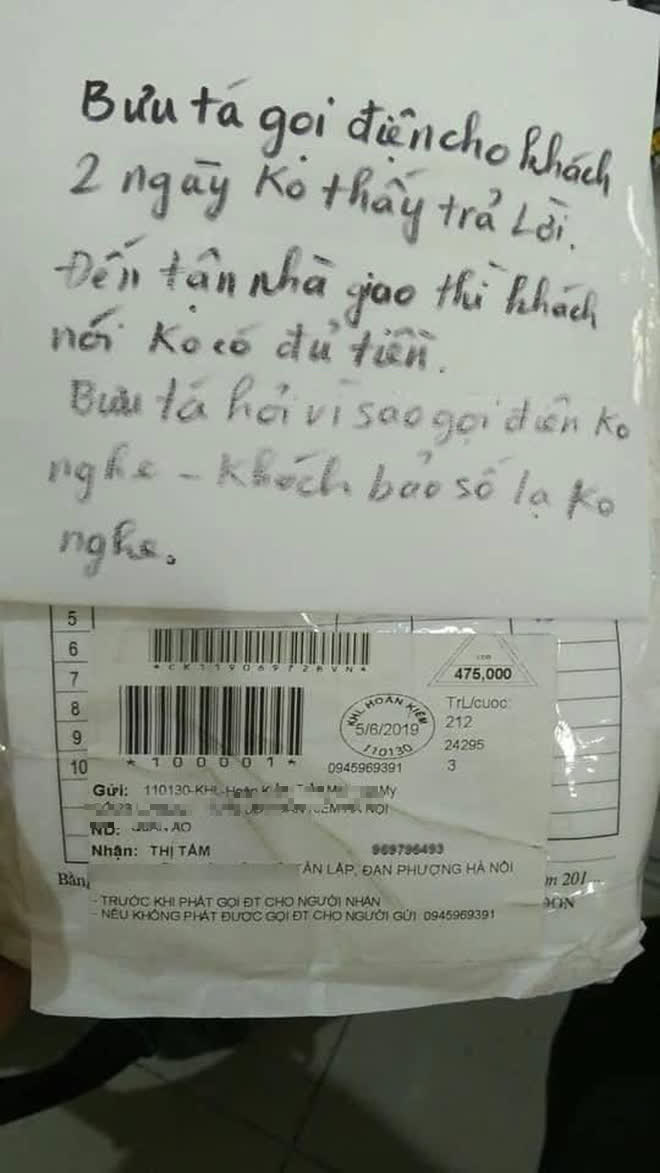 Bưu tá gọi điện cho khách
2 ngày Ko thấy trả Lời.
Đến tận nhà giao thì khách
nói Ko có đủ tiền.
Bưu tá hỏi vì sao gọi điện Ko
nghe - Khách bảo số lạ Ko
nghe.
5
6
7
8
9
10
*CK119069728VN*
475,000
*100001*
KHL HOÀN KIẾM
5/6/2019
110130
TrL/cuoc:
212
24295
3
0945969391
Gửi: 110130-KHL-Hoàn My
NỘI
ND: QUẦN ÁO
Nhận: THỊ TÂM 969796493
TÂN LẬP, ĐAN PHƯỢNG HÀ NỘI
Bằng
m 201...
- TRƯỚC KHI PHÁT GỌI ĐT CHO NGƯỜI NHẬN
- NẾU KHÔNG PHÁT ĐƯỢC GỌI ĐT CHO NGƯỜI GỬI 0945969391